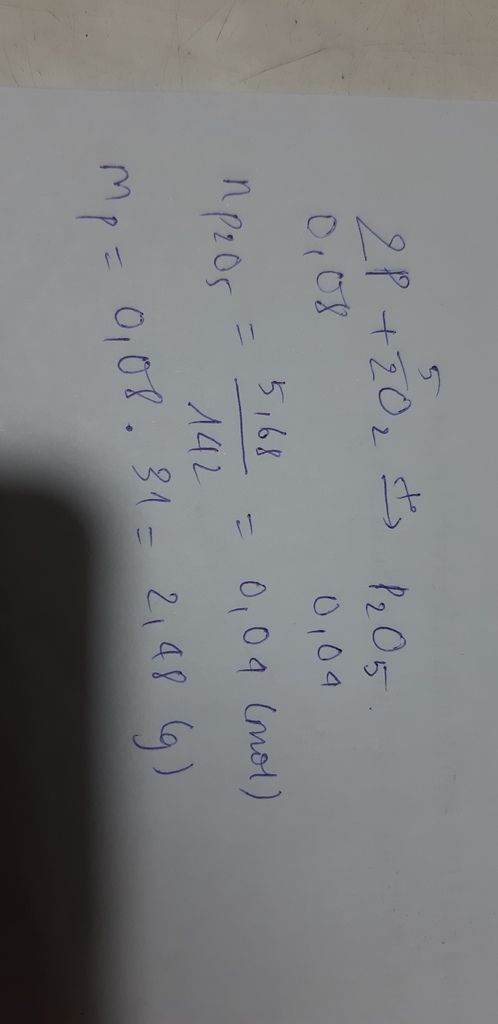 2P + 5/2 O₂ →(t°) P₂O₅
0,08 0,04
nP₂O₅ = 5,68/142 = 0,04 (mol)
mP = 0,08 . 31 = 2,48 (g)